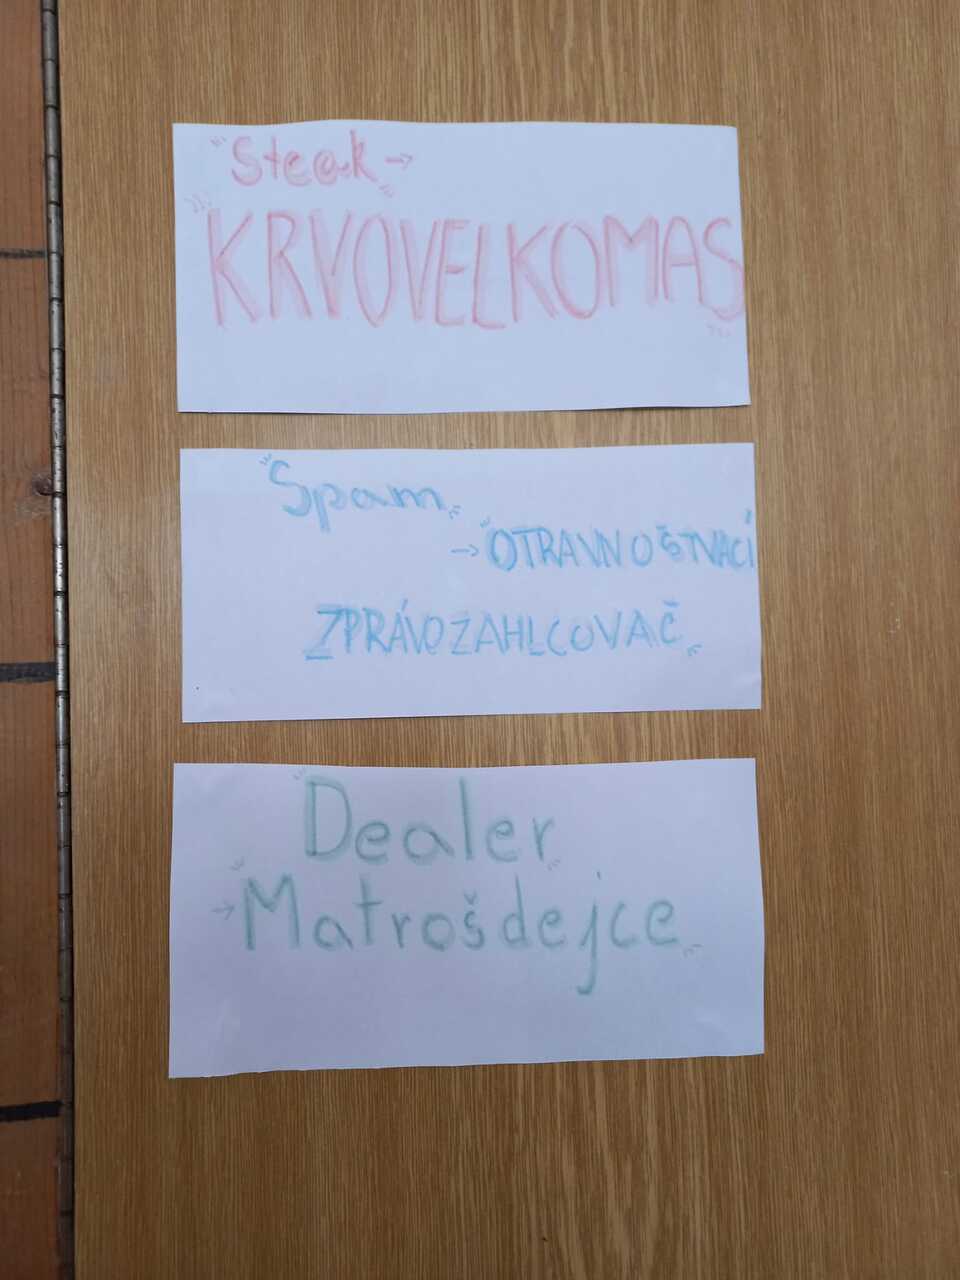 "Steak" →
"KRVOVELKOMAS"
"Spam"
→ "OTRAVNOŠTVACÍ
ZPRÁVOZAHLCOVAČ"
"Dealer"
→ "Matrošdejce"